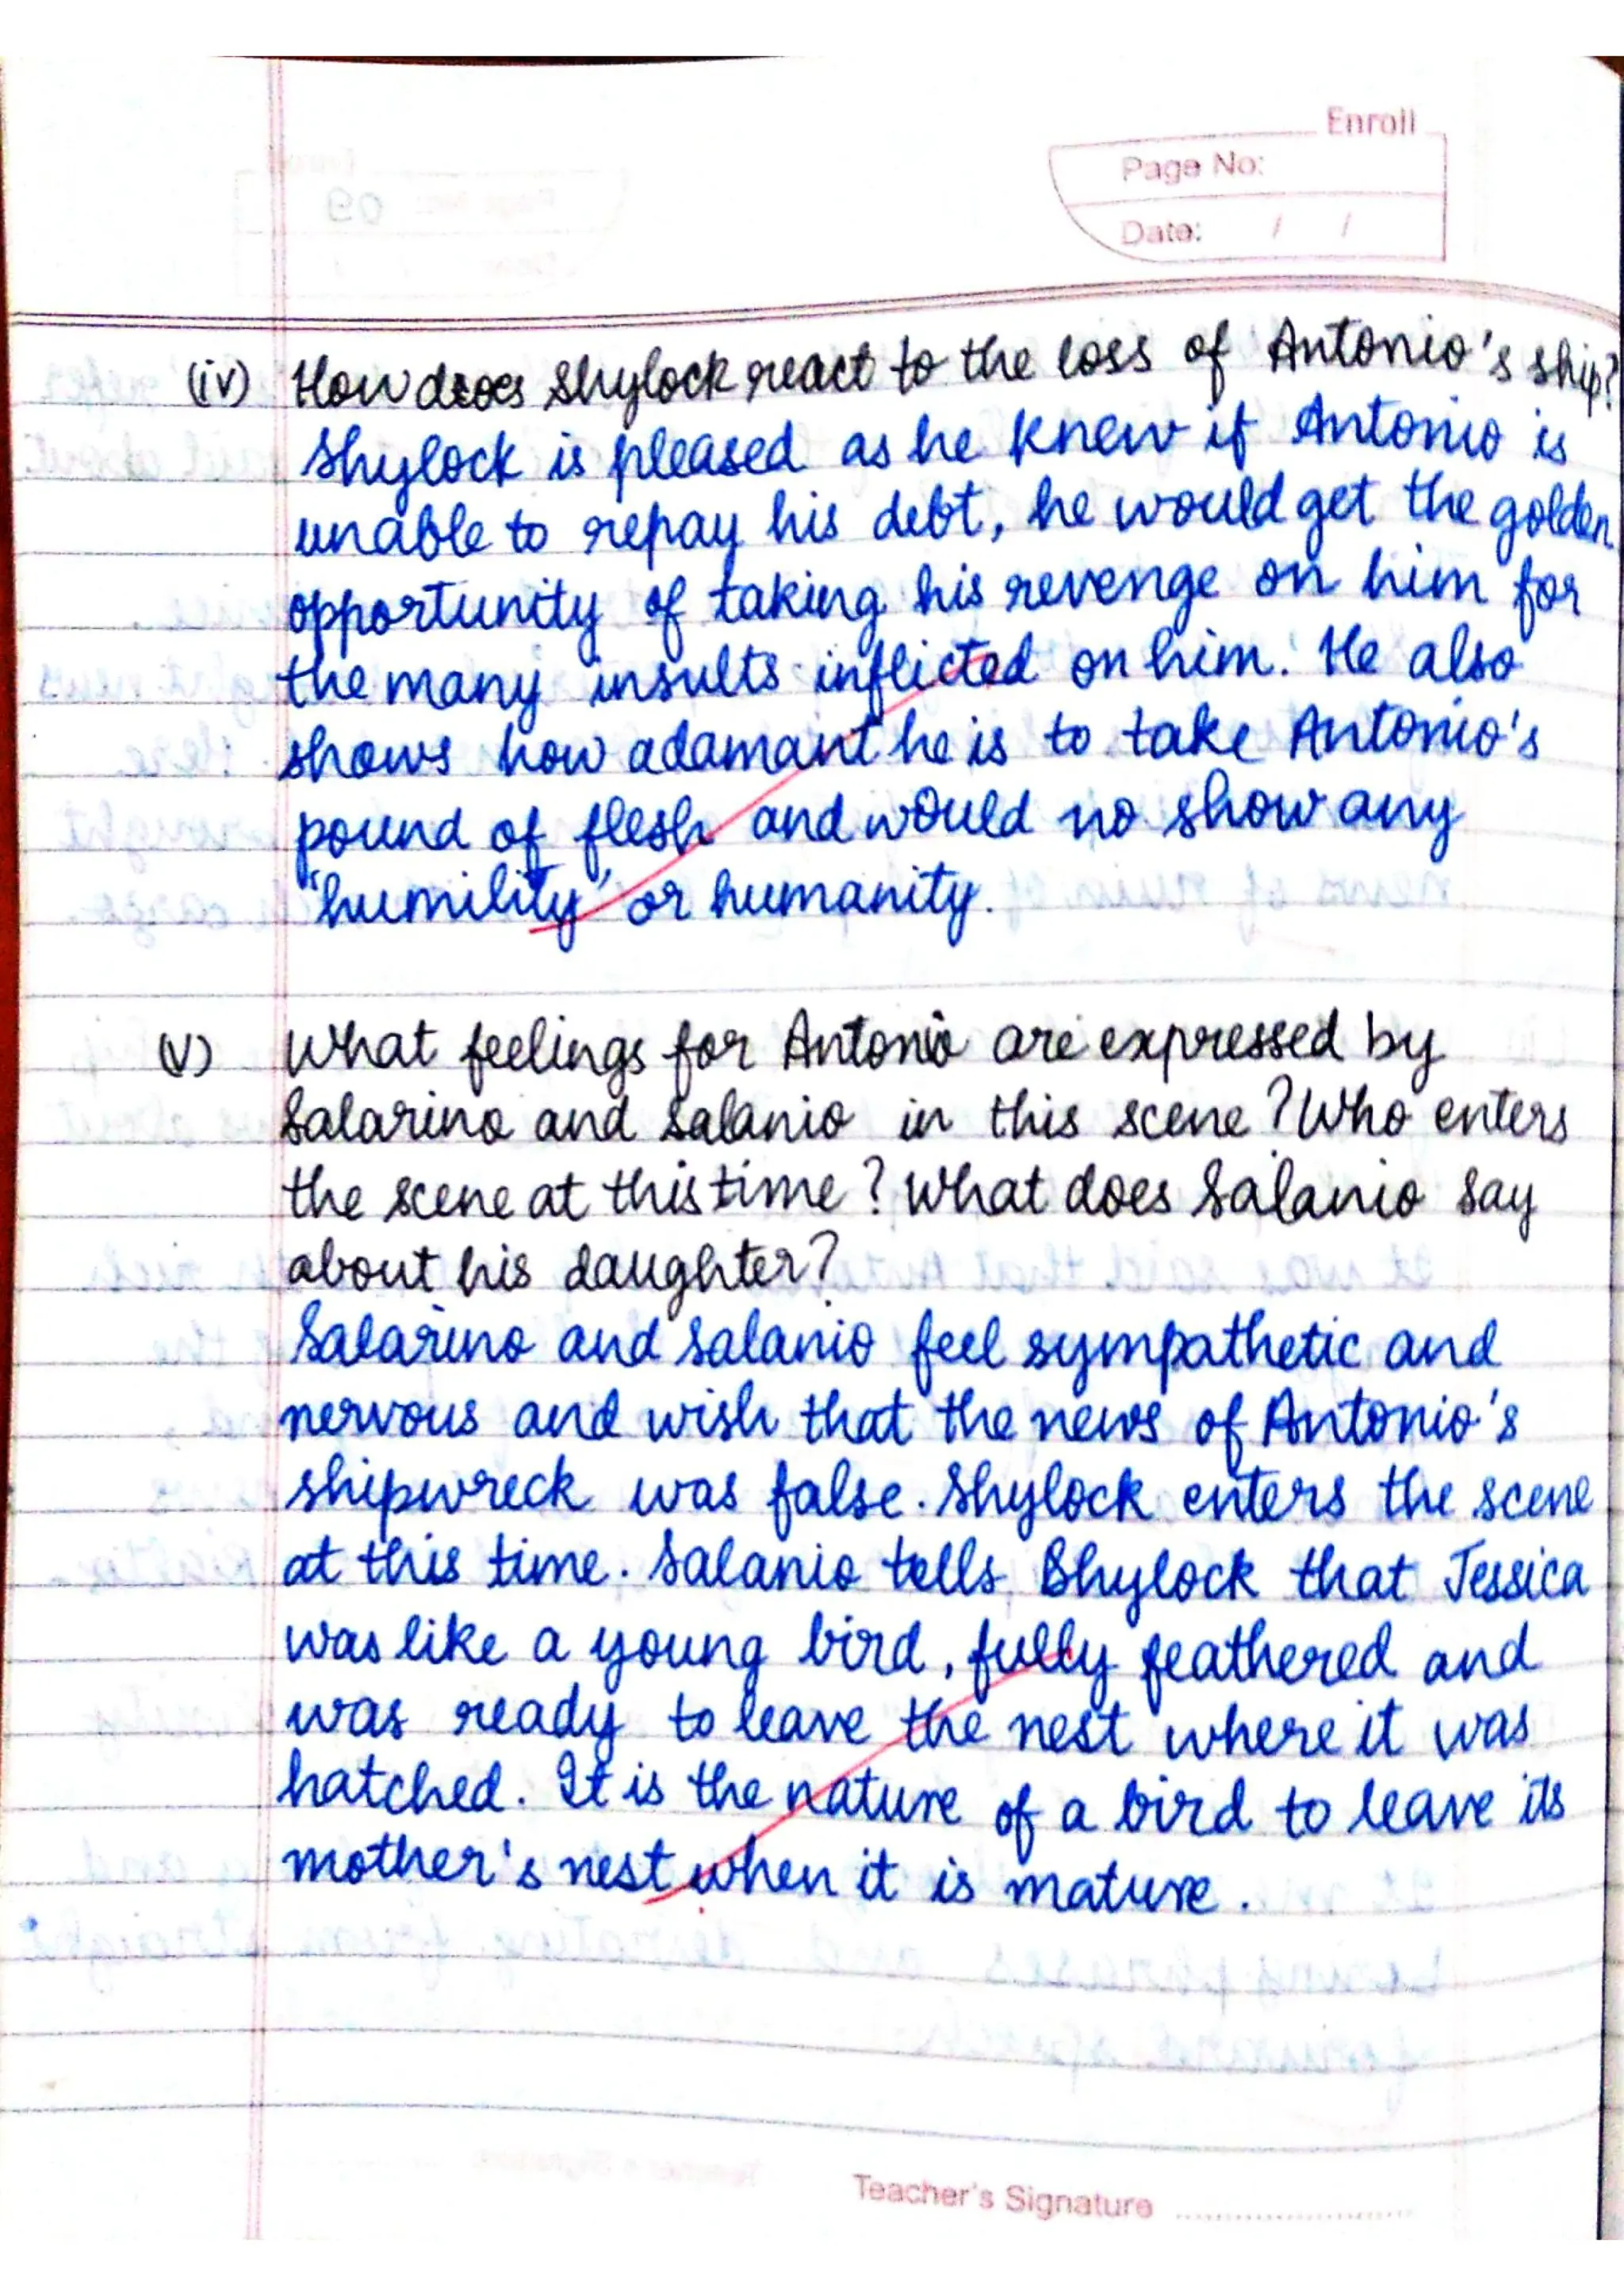 Enroll
Page No:
Date: / /
(iv) How does Shylock react to the loss of Antonio's ship?
Shylock is pleased as he knew if Antonio is
unable to repay his debt, he would get the golden
opportunity of taking his revenge on him for
the many insults inflicted on him. He also
shows how adamant he is to take Antonio's
pound of flesh and would no show any
'humility' or humanity.
(v) What feelings for Antonio are expressed by
Salarino and Salanio in this scene? Who enters
the scene at this time? What does Salanio say
about his daughter?
Salarino and Salanio feel sympathetic and
nervous and wish that the news of Antonio's
shipwreck was false. Shylock enters the scene
at this time. Salanio tells Shylock that Jessica
was like a young bird, fully feathered and
was ready to leave the nest where it was
hatched. It is the nature of a bird to leave its
mother's nest when it is mature.
Teacher's Signature